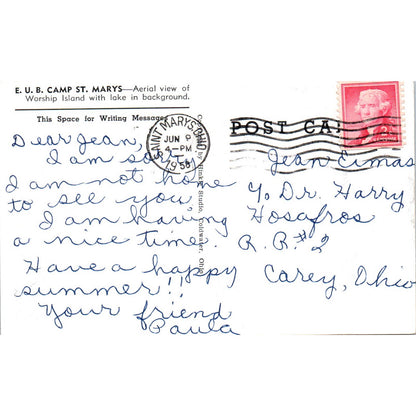 E. U. B. CAMP ST. MARYS—Aerial view of
Worship Island with lake in background.
This Space for Writing Messages
SAINT MARYS, OHIO
JUN 9
4-PM
1958
POST CA
Dear Jean,
I am sorry
I am not home
to see you,
I am having
a nice time.
Have a happy
summer!!
Your friend
Paula
Jean Cimas
℅ Dr. Harry
Hosafros
R. R. #2
Carey, Ohio
by
Studio, Coldwater, Ohio